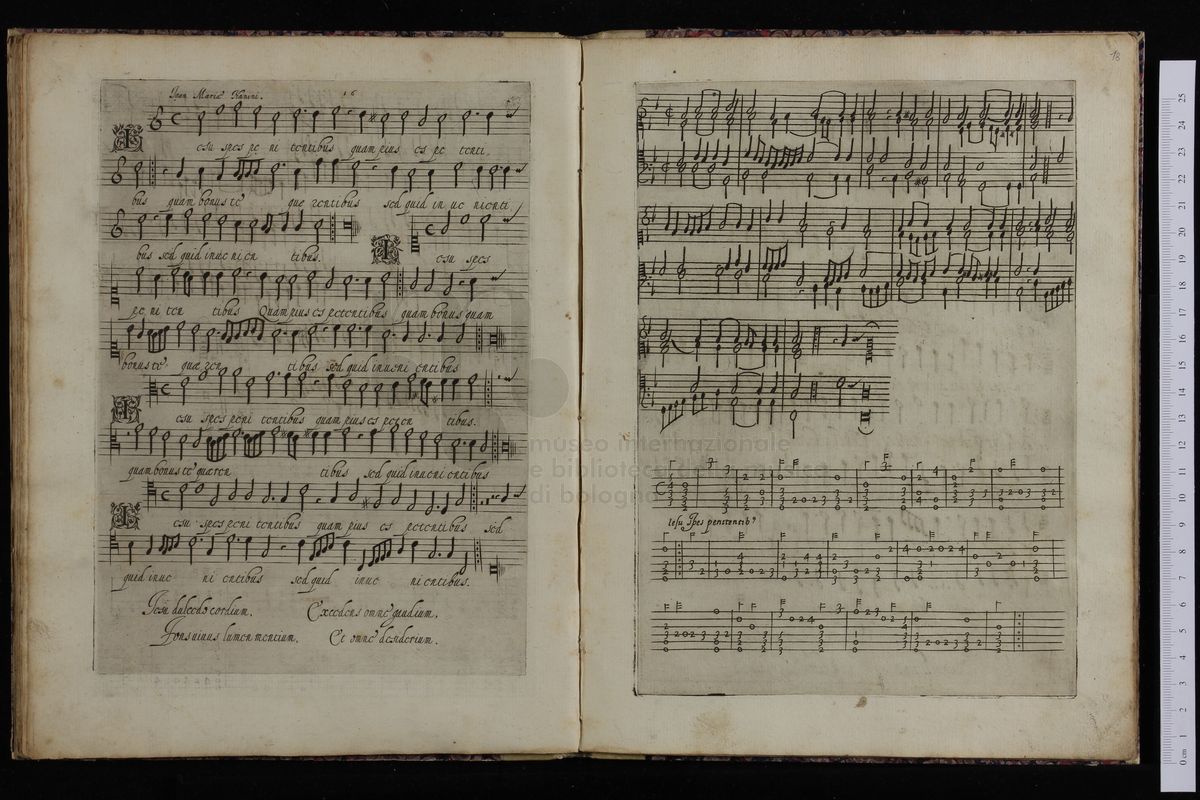 Joan Mariæ Nanini. 16
Iesu spes pe ni tentibus quam pius es pe tenti.
bus quam bonus te que rentibus sed quid in ue nienti
bus sed quid inue ni en tibus. Iesu spes
pe ni ten tibus Quam pius es petentibus quam bonus quam
bonus te quæ ren tibus sed quid inueni entibus
Iesu spes peni tentibus quam pius es peten tibus.
quam bonus te quæren tibus sed quid inueni entibus
Iesu spes peni tentibus quam pius es petentibus sed
quid inue ni entibus sed quid inue ni entibus.
Iesu dulcedo cordium, Excedens omne gaudium,
Fons uiuus lumen mentium, Et omne desiderium.
18
Iesu Spes penitentib9
museo internazionale
e biblioteca della musica
di bologna
0 cm 1 2 3 4 5 6 7 8 9 10 11 12 13 14 15 16 17 18 19 20 21 22 23 24 25